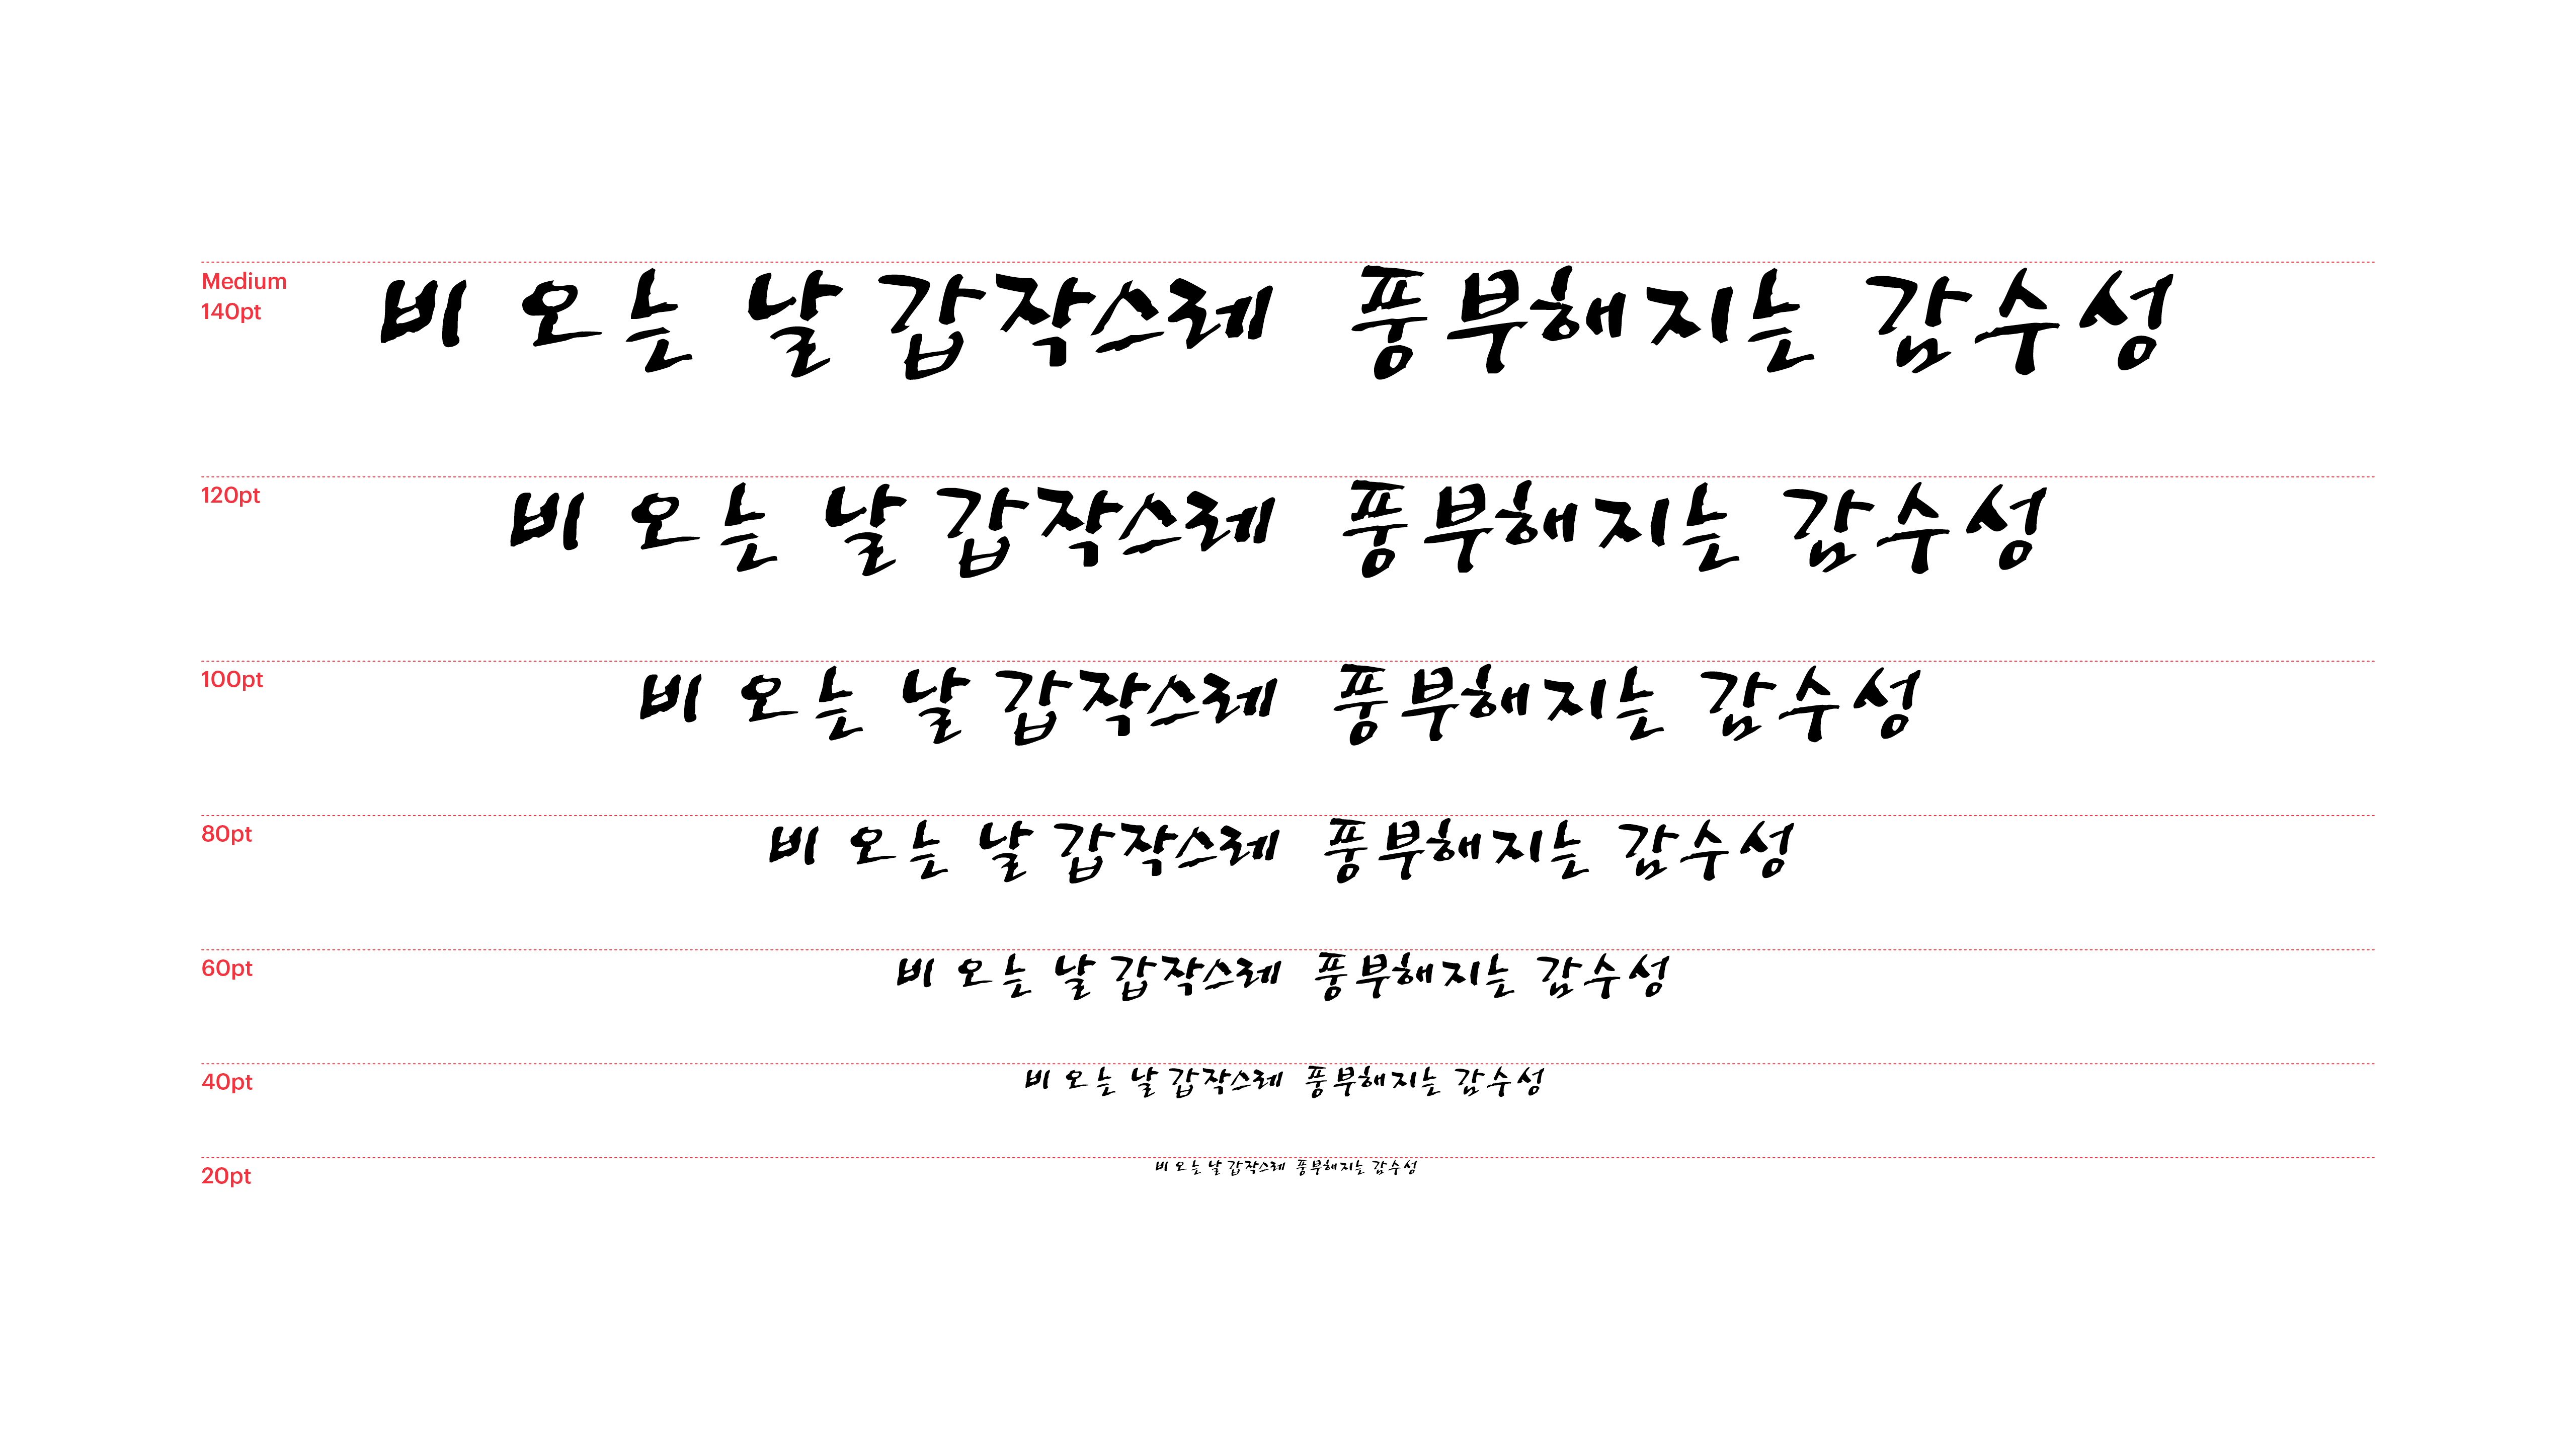 Medium
140pt
비 오는 날 갑작스레 풍부해지는 감수성
120pt
비 오는 날 갑작스레 풍부해지는 감수성
100pt
비 오는 날 갑작스레 풍부해지는 감수성
80pt
비 오는 날 갑작스레 풍부해지는 감수성
60pt
비 오는 날 갑작스레 풍부해지는 감수성
40pt
비 오는 날 갑작스레 풍부해지는 감수성
20pt
비 오는 날 갑작스레 풍부해지는 감수성